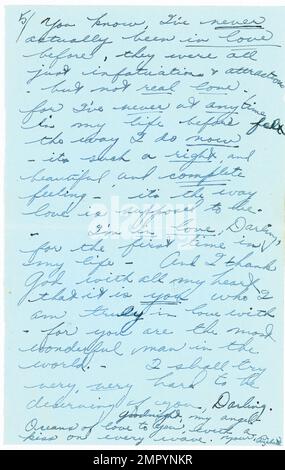 5/ You know, I've never
actually been in love
before, they were all
just infatuations & attractions
- but not real love.
for I've never at anytime
in my life before felt
the way I do now
- it's such a right, and
beautiful, and complete
feeling - it's the way
love is supposed to be.
- I'm in love, Darling,
for the first time in
my life - And I thank
God with all my heart
that it is you who I
am truly in love with
- for you are the most
wonderful man in the
world. - I shall try
very, very hard to be
deserving of you, Darling.
goodnight, my angel
Oceans of love to you, with a
kiss on every wave.
alamy
Image ID: 2MPYNKR
www.alamy.com